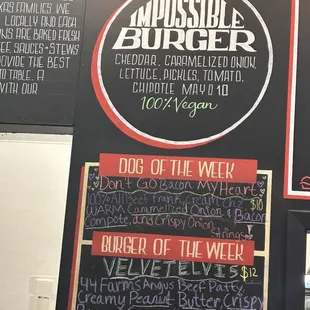 XAS FAMILIES WE
LOCALLY AND EACH
NS ARE BAKED FRESH
EF, SAUCES + STEWS
OVIDE THE BEST
TO TABLE. A
WITH OUR
IMPOSSIBLE
BURGER
CHEDDAR, CARAMELIZED ONION,
LETTUCE, PICKLES, TOMATO,
CHIPOTLE MAYO 10
100% Vegan
DOG OF THE WEEK
Don't GO Bacon My Heart
100% All Beef Frank, Cream
WARM Caramelized Onion & Bacon $10
Compote, and Crispy Onion
Strings
BURGER OF THE WEEK
VELVET ELVIS $12
44 Farms Angus Beef Patty,
Creamy Peanut Butter, Crispy